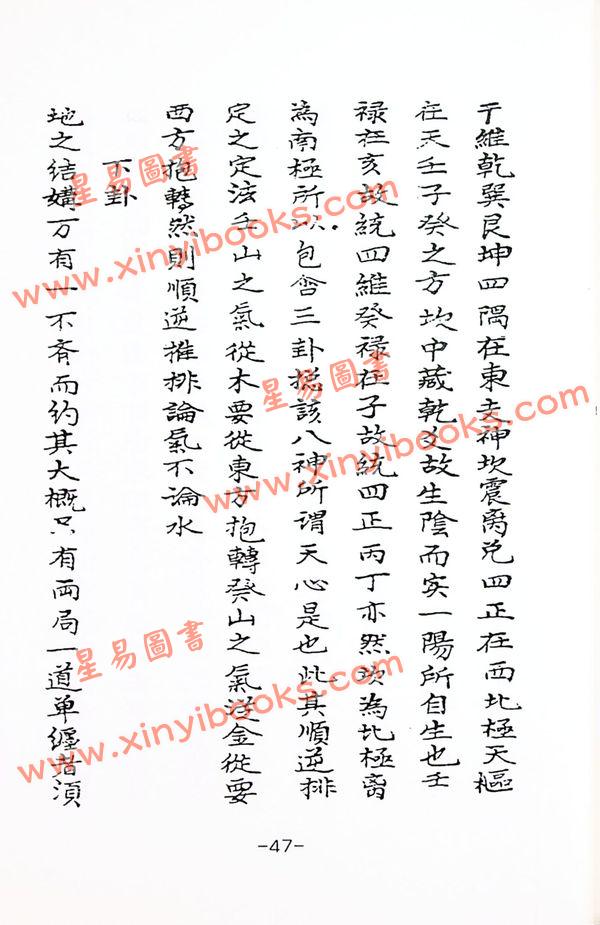 干維乾巽艮坤四隅在東支神坎震离兑四正在西北極天樞
在天壬子癸之方坎中藏乾爻故生陰而实一陽所自生也壬
禄在亥故統四維癸禄在子故統四正丙丁亦然坎為北極离
為南極所以包含三卦捴該八神所谓天心是也此其順逆排
定之定法壬山之氣從木要從東方抱轉癸山之氣従金從要
西方抱轉然則順逆推排論氣不論水
下卦
地之结構万有一不斉而约其大概只有両局一道单纒者湏
-47-
星易圖書
www.xinyibooks.com
星易圖書
www.xinyibooks.com
星易圖書
www.xinyibooks.com